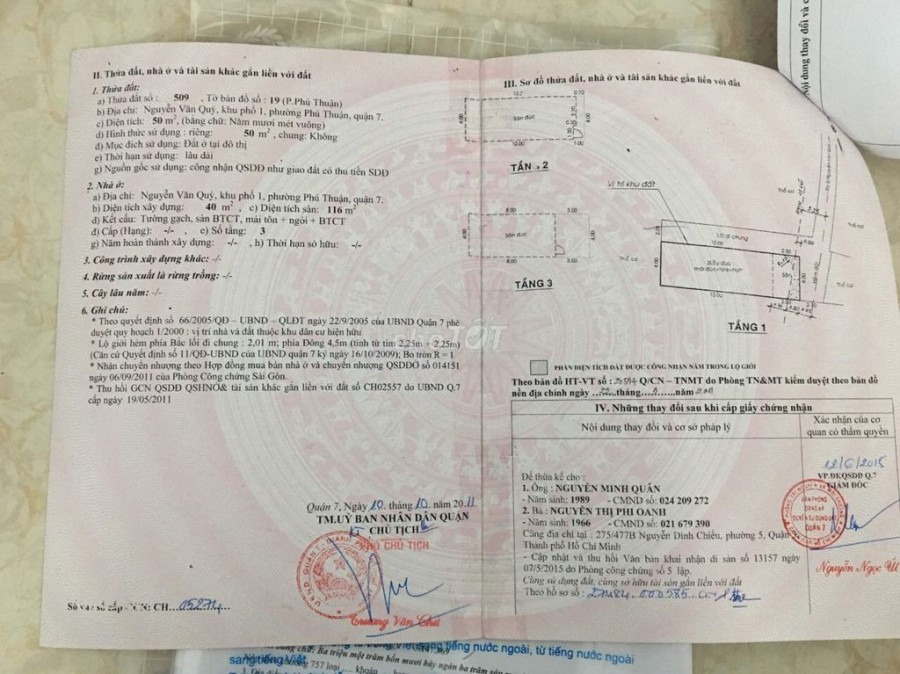 II. Thửa đất, nhà ở và tài sản khác gắn liền với đất
1. Thửa đất:
a) Thửa đất số : 509 , Tờ bản đồ số : 19 (P.Phú Thuận)
b) Địa chỉ: Nguyễn Văn Quỳ, khu phố 1, phường Phú Thuận, quận 7.
c) Diện tích: 50 m², (bằng chữ: Năm mươi mét vuông)
d) Hình thức sử dụng : riêng: 50 m², chung: Không
đ) Mục đích sử dụng: Đất ở tại đô thị
e) Thời hạn sử dụng: lâu dài
g) Nguồn gốc sử dụng: công nhận QSDĐ như giao đất có thu tiền SDĐ
2. Nhà ở:
a) Địa chỉ: Nguyễn Văn Quỳ, khu phố 1, phường Phú Thuận, quận 7.
b) Diện tích xây dựng: 40 m², c) Diện tích sàn: 116 m²
d) Kết cấu: Tường gạch, sàn BTCT, mái tôn + ngói + BTCT
đ) Cấp (Hạng): -/- , e) Số tầng: 3
g) Năm hoàn thành xây dựng: -/-, h) Thời hạn sở hữu: -/-
3. Công trình xây dựng khác: -/-
4. Rừng sản xuất là rừng trồng: -/-
5. Cây lâu năm: -/-
6. Ghi chú:
* Theo quyết định số 66/2005/QĐ – UBND – QLĐT ngày 22/9/2005 của UBND Quận 7 phê
duyệt quy hoạch 1/2000 : vị trí nhà và đất thuộc khu dân cư hiện hữu
* Lộ giới hẻm phía Bắc lối đi chung : 2,01 m; phía Đông 4,5m (tính từ tim 2,25m + 2,25m)
(Căn cứ Quyết định số 11/QĐ-UBND của UBND quận 7 ký ngày 16/10/2009); Bo tròn R = 1
* Nhận chuyển nhượng theo Hợp đồng mua bán nhà ở và chuyển nhượng QSDĐO số 014151
ngày 06/09/2011 của Phòng Công chứng Sài Gòn.
* Thu hồi GCN QSDĐ QSHNO& tài sản khác gắn liền với đất số CH02557 do UBND Q.7
cấp ngày 19/05/2011
Quận 7, Ngày 10 tháng 10 .20.11
TM.UỶ BAN NHÂN DÂN QUẬN
CHỦ TỊCH
PHÓ CHỦ TỊCH
Trương Văn
Số vào sổ cấp GCN: CH...05274
III. Sơ đồ thửa đất, nhà ở và tài sản khác gắn liền với đất
Sàn đúc
TẦNG 2
Vị trí khu đất
Sàn đúc
Lối đi chung
TẦNG 3
TẦNG 1
PHẦN DIỆN TÍCH ĐẤT ĐƯỢC CÔNG NHẬN NẰM TRONG LỘ GIỚI
Theo bản đồ HT-VT số : Q/CN – TNMT do Phòng TN&MT kiểm duyệt theo bản đồ
nền địa chính ngày tháng năm
IV. Những thay đổi sau khi cấp giấy chứng nhận
Nội dung thay đổi và cơ sở pháp lý
Xác nhận của cơ
quan có thẩm quyền
12/6/2015
VP.ĐKQSDĐ Q.7
GIÁM ĐỐC
Để thừa kế cho :
1. Ông : NGUYỄN MINH QUÂN
- Năm sinh: 1989 - CMND số: 024 209 272
2. Bà : NGUYỄN THỊ PHI OANH
- Năm sinh: 1966 - CMND số: 021 679 390
Cùng địa chỉ tại : 275/477B Nguyễn Đình Chiểu, phường 5, Quận
Thành phố Hồ Chí Minh
- Cập nhật và thu hồi Văn bản khai nhận di sản số 13157 ngày
07/5/2015 do Phòng công chứng số 5 lập.
Cùng sử dụng đất, cùng sở hữu tài sản gắn liền với đất
Theo hồ sơ số :
Nguyễn Ngọc Út
Nội dung thay đổi và c
tiếng nước ngoài, từ tiếng nước ngoài
sang tiếng Việt